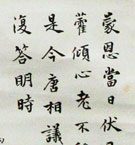 蒙恩當日伏
藿傾心老不
是今唐相議
復答明時